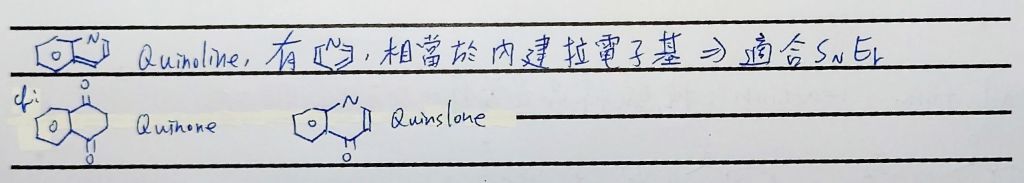 Quinoline, 有 N, 相當於內建拉電子基 ⇒ 適合 SNEr
cf: O O Quinone N O Quinslone